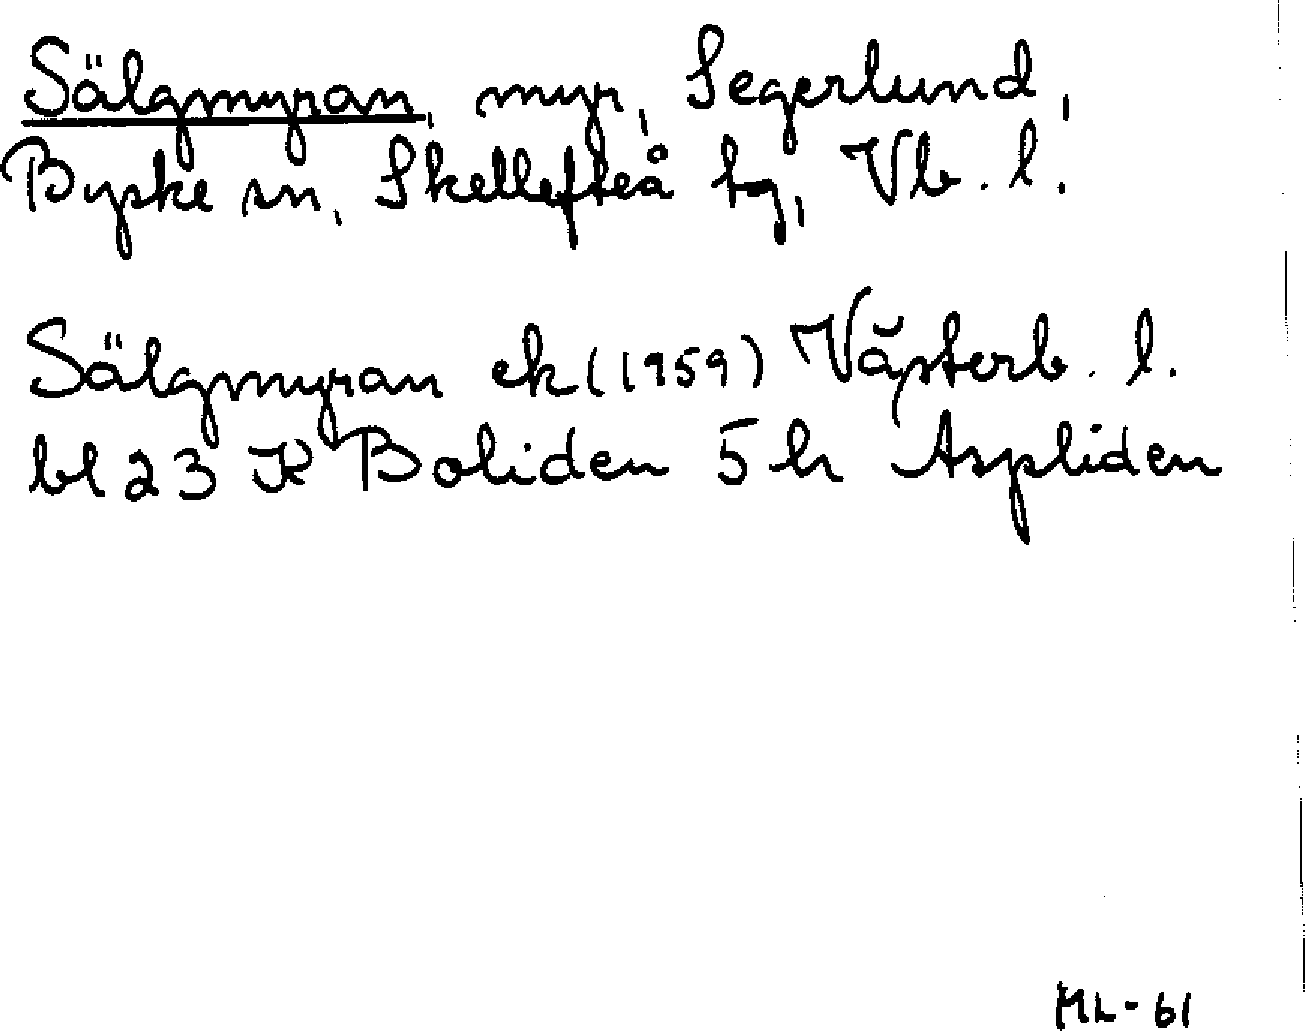 Sälgmyran, myr, Segerlund,
Byske sn, Skellefteå tg, Vb. l.
Sälgmyran ek (1959) Västerb. l.
bl 23 K Boliden 5 h Aspliden
ML-61